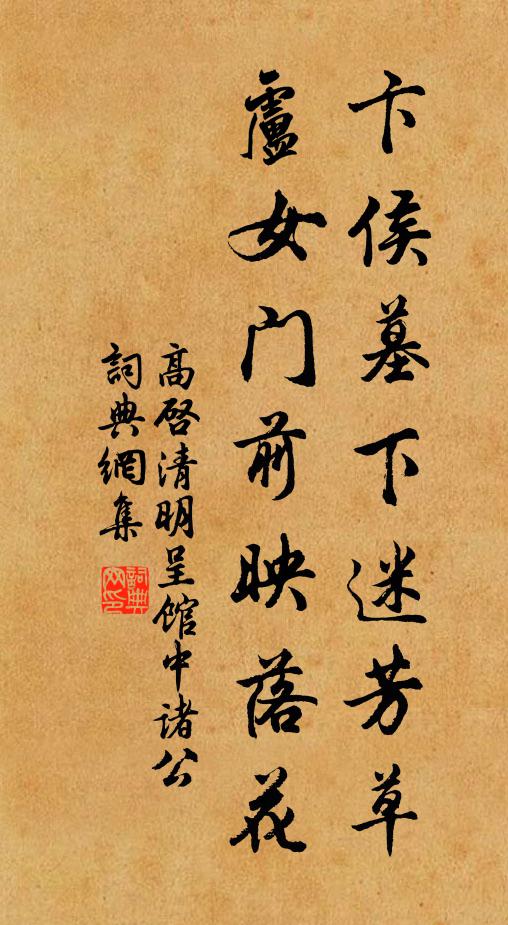 卞侯墓下迷芳草
盧女門前映落花
高啓清明呈館中諸公
詞典網集
詞典网印